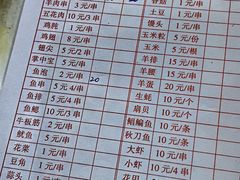 羊肉串 3元/串
五花肉 10元/3串
鸡肫 1元/串
鸡翅 8元/串
翅尖 5元/2串
掌中宝 5元/串
鱼泡 2元/串
鱼串 5元 4/串 20
鱼排 5元/串
鱼鳃 10元/3串
牛板筋 2元/串
鱿鱼 5元/串
花菜 1元/串
豆角 1元/串
蒜头
香菇 1元/串
土豆 1元/串
馒头 1元/串
玉米粒 5元/份
玉米 5元/根
羊排 15元/串
羊腰 15元/串
蛋茄 20元/串
生蚝 10元/个
扇贝 10元/个
鲳鱼 10元/条
秋刀鱼 10元/条
大虾 10元/串
小虾 10元/4串
花甲